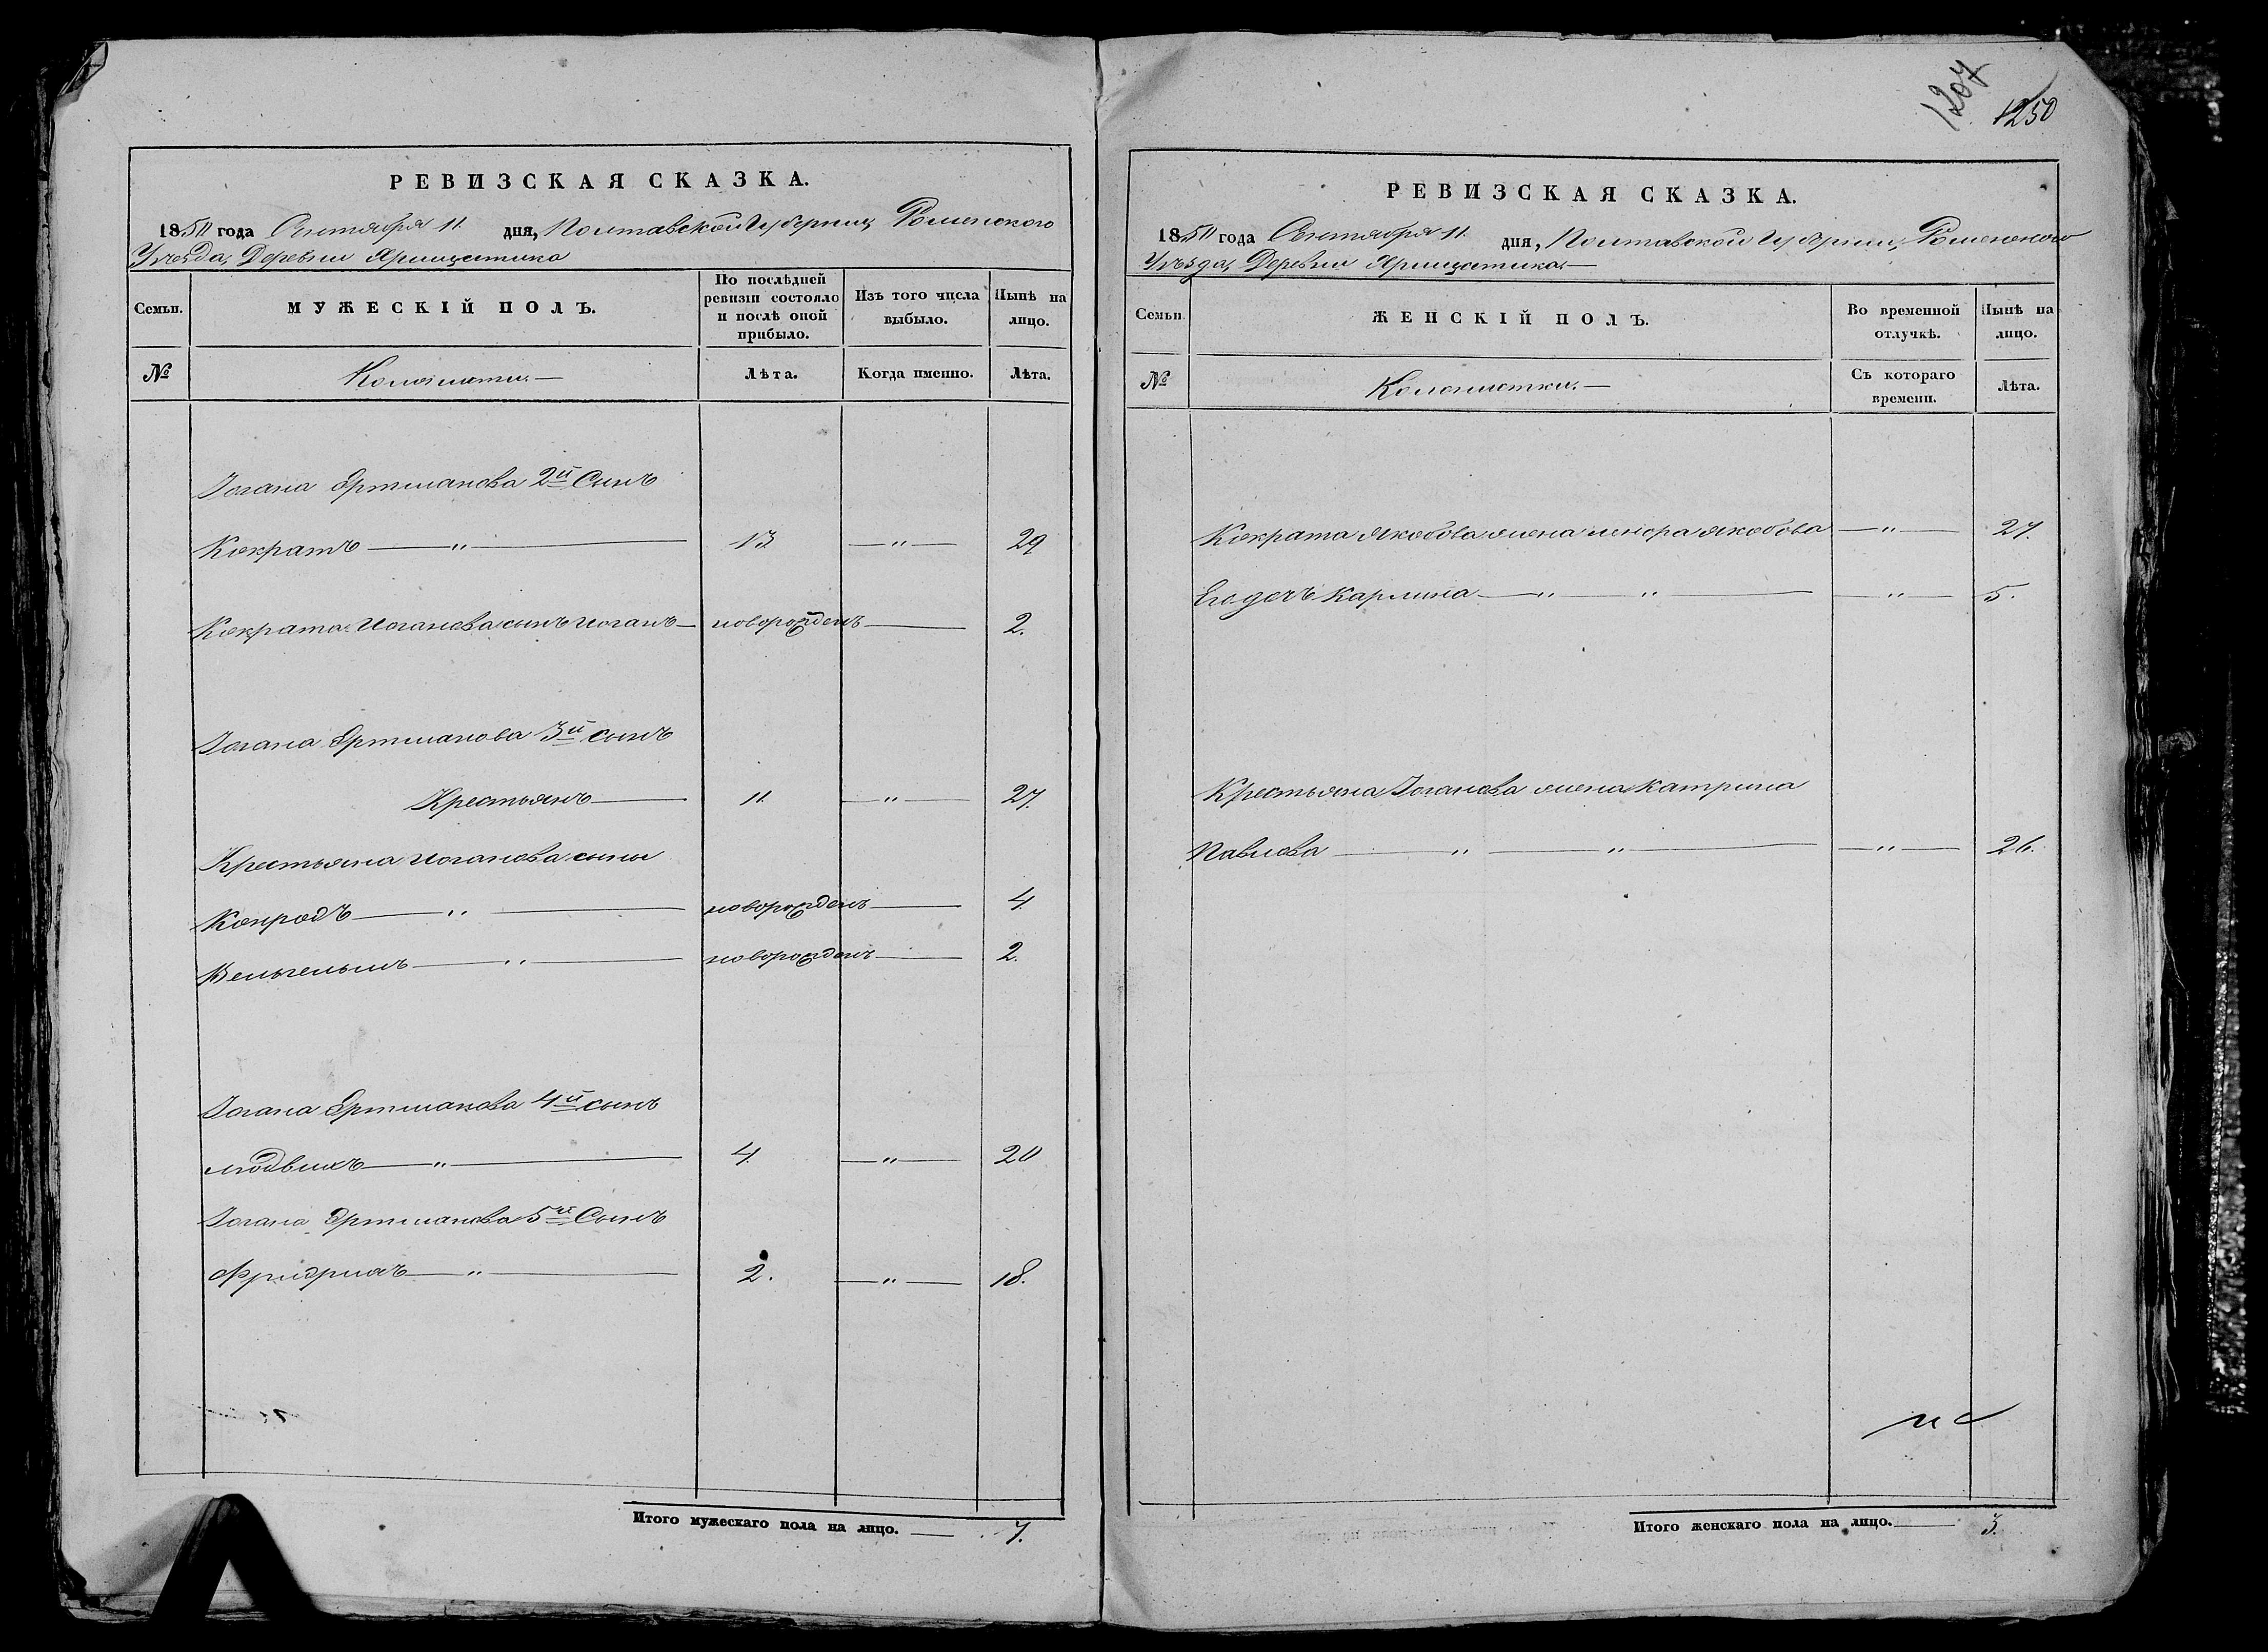 РЕВИЗСКАЯ СКАЗКА.
1850 года Октября 11. дня, Полтавской Губернии Роменского
Уезда, Деревни
Семьи.
МУЖЕСКІЙ ПОЛЪ.
По послѣдней ревизіи состояло и послѣ оной прибыло.
Изъ того числа выбыло.
Нынѣ на лицо.
№
Колонисты.—
Лѣта.
Когда именно.
Лѣта.
Іогана Ертманова 2й Сынъ
Конратъ — " — 13 — " — 29
Конрата Иоганова сынъ Иоганъ — новорожденъ — 2.
Іогана Ертманова 3й сынъ
Крестьянъ — 11 — " — 27.
Крестьяна Иоганова сыны
Конродъ — " — новорожденъ — 4.
Вельгельмъ — " — новорожденъ — 2.
Іогана Ертманова 4й сынъ
людвихъ — " — 4. — " — 20
Іогана Ертманова 5й Сынъ
Фридрихъ — " — 2. — " — 18.
Итого мужескаго пола на лицо. — 7.
1207
1250
РЕВИЗСКАЯ СКАЗКА.
1850 года Октября 11. дня, Полтавской Губернии, Роменского
Уѣзда, Деревни
Семьи.
ЖЕНСКІЙ ПОЛЪ.
Во временной отлучкѣ.
Нынѣ на лицо.
№
Колонистки.—
Съ котораго времени.
Лѣта.
Конрата Якобова жена Якобова — " — 27.
Его дочь Карлина — " — " — — " — 5.
Крестьяна Іоганова жена Катрина
Павлова — " — " — — " — 26.
Итого женскаго пола на лицо. — 3.